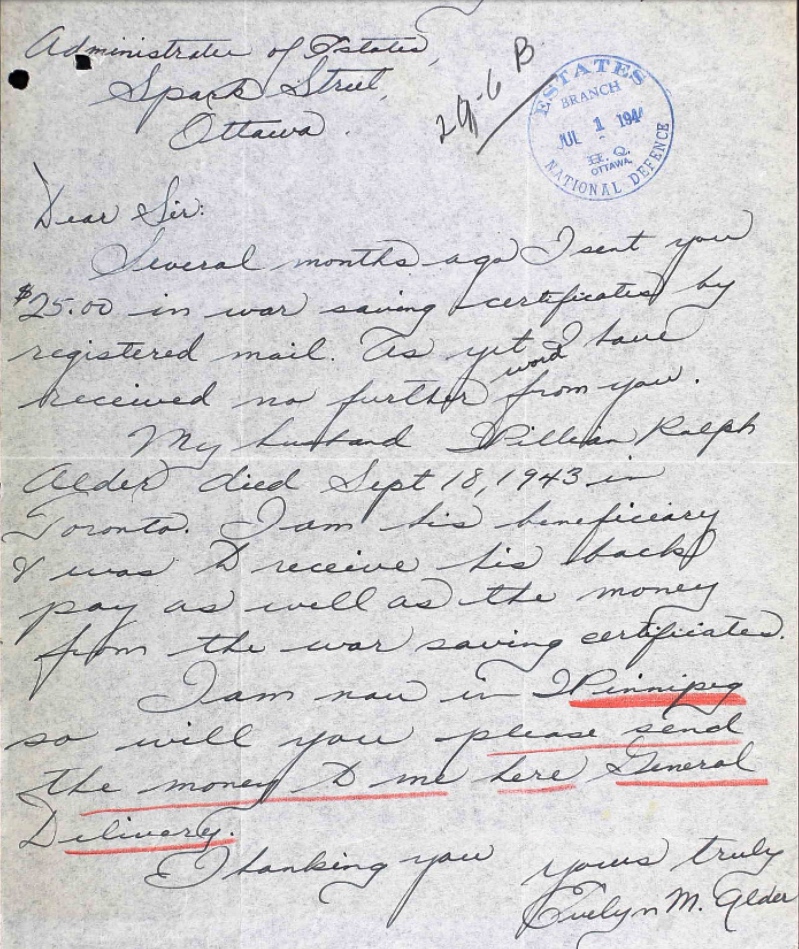 Administrator of Estates,
Spark Street,
Ottawa.
29-6 B
ESTATES
BRANCH
JUL 1 1944
H.Q.
OTTAWA
NATIONAL DEFENCE
Dear Sir:
Several months ago I sent you
$25.00 in war saving certificates by
registered mail. As yet I have
received no further word from you.
My husband William Ralph
Alder died Sept 18, 1943 in
Toronto. I am his beneficiary
& was to receive his back
pay as well as the money
from the war saving certificates.
I am now in Winnipeg
so will you please send
the money to me here General
Delivery.
Thanking you
yours truly
Evelyn M. Alder